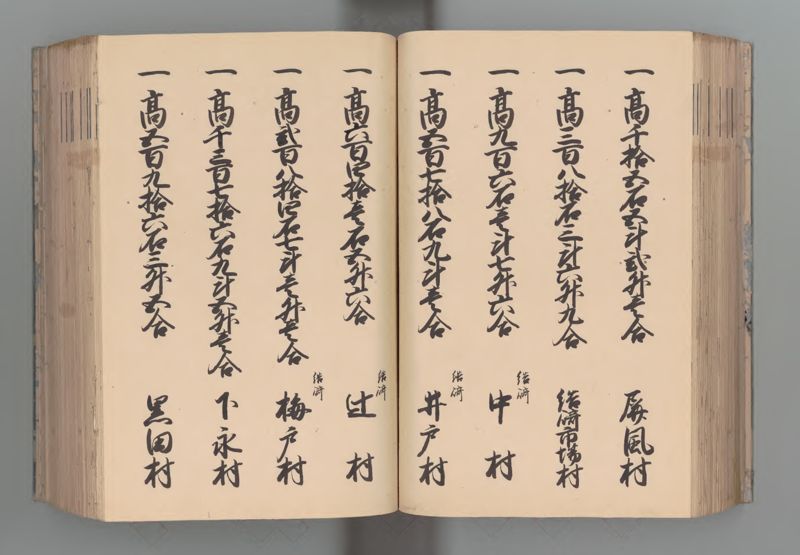 一高千拾五石五斗弐升壱合 屏風村
一高三百八拾石三斗六升九合 市場村
一高九百六石壱斗七升六合 中村
一高五百七拾八石九斗壱合 井戸村
一高六百四拾壱石五升六合 辻村
一高弐百八拾四石七斗壱升壱合 梅戸村
一高千三百七拾六石九斗五升壱合 下永村
一高五百九拾六石三升五合 黒田村